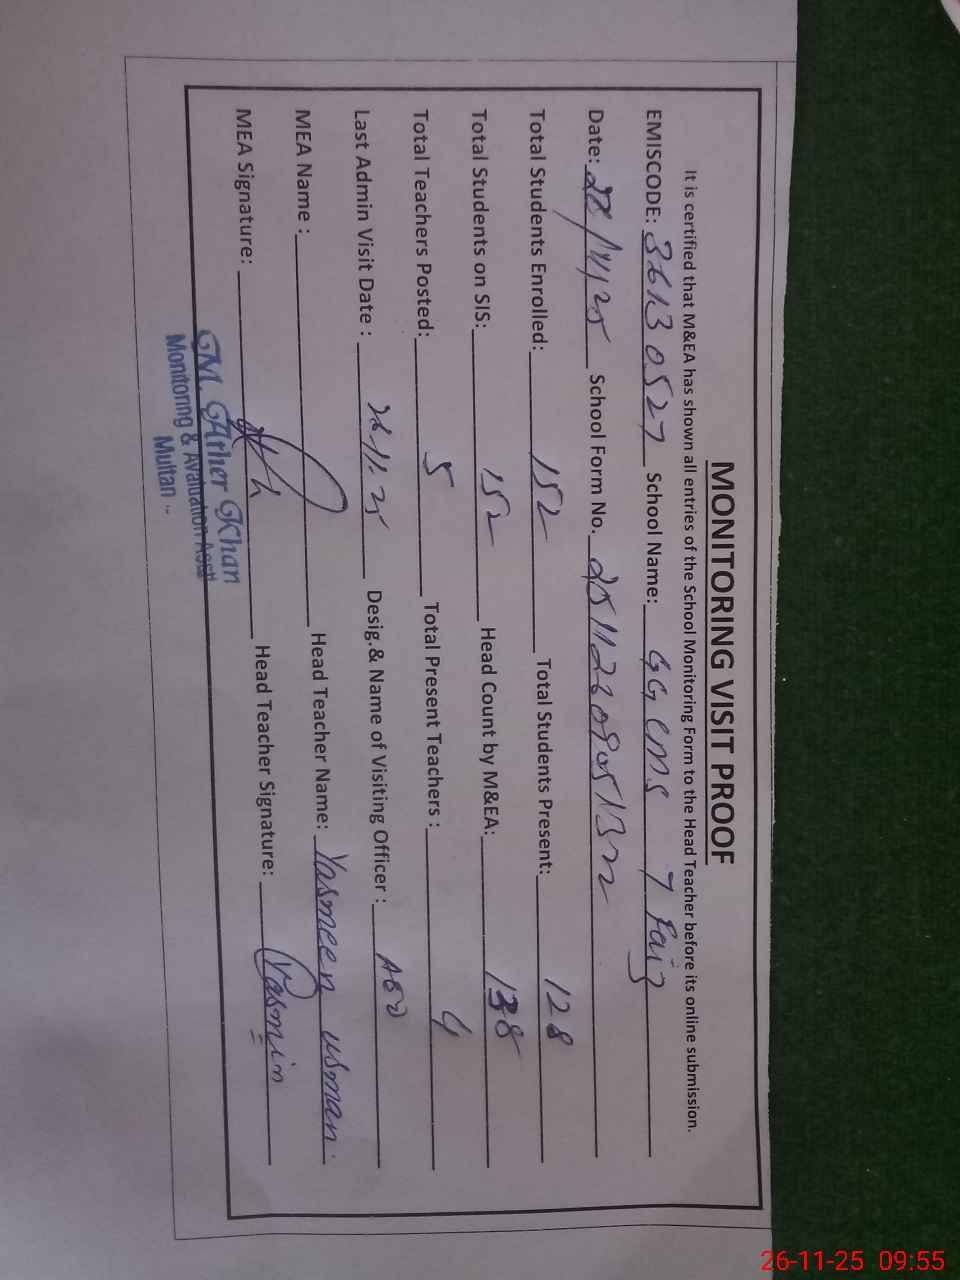 MONITORING VISIT PROOF
It is certified that M&EA has shown all entries of the School Monitoring Form to the Head Teacher before its online submission.
EMISCODE: 36130527 School Name: GGCMS 7 Faiz
Date: /11/25 School Form No.
Total Students Enrolled: 152 Total Students Present: 128
Total Students on SIS: 152 Head Count by M&EA: 138
Total Teachers Posted: 5 Total Present Teachers : 4
Last Admin Visit Date : 26.11.25 Desig.& Name of Visiting Officer :
MEA Name : Head Teacher Name: Yasmeen usman.
MEA Signature: Head Teacher Signature: Yasmin
GM. Ather Khan
Monitoring & Avaluation Asstt
Multan
26-11-25 09:55